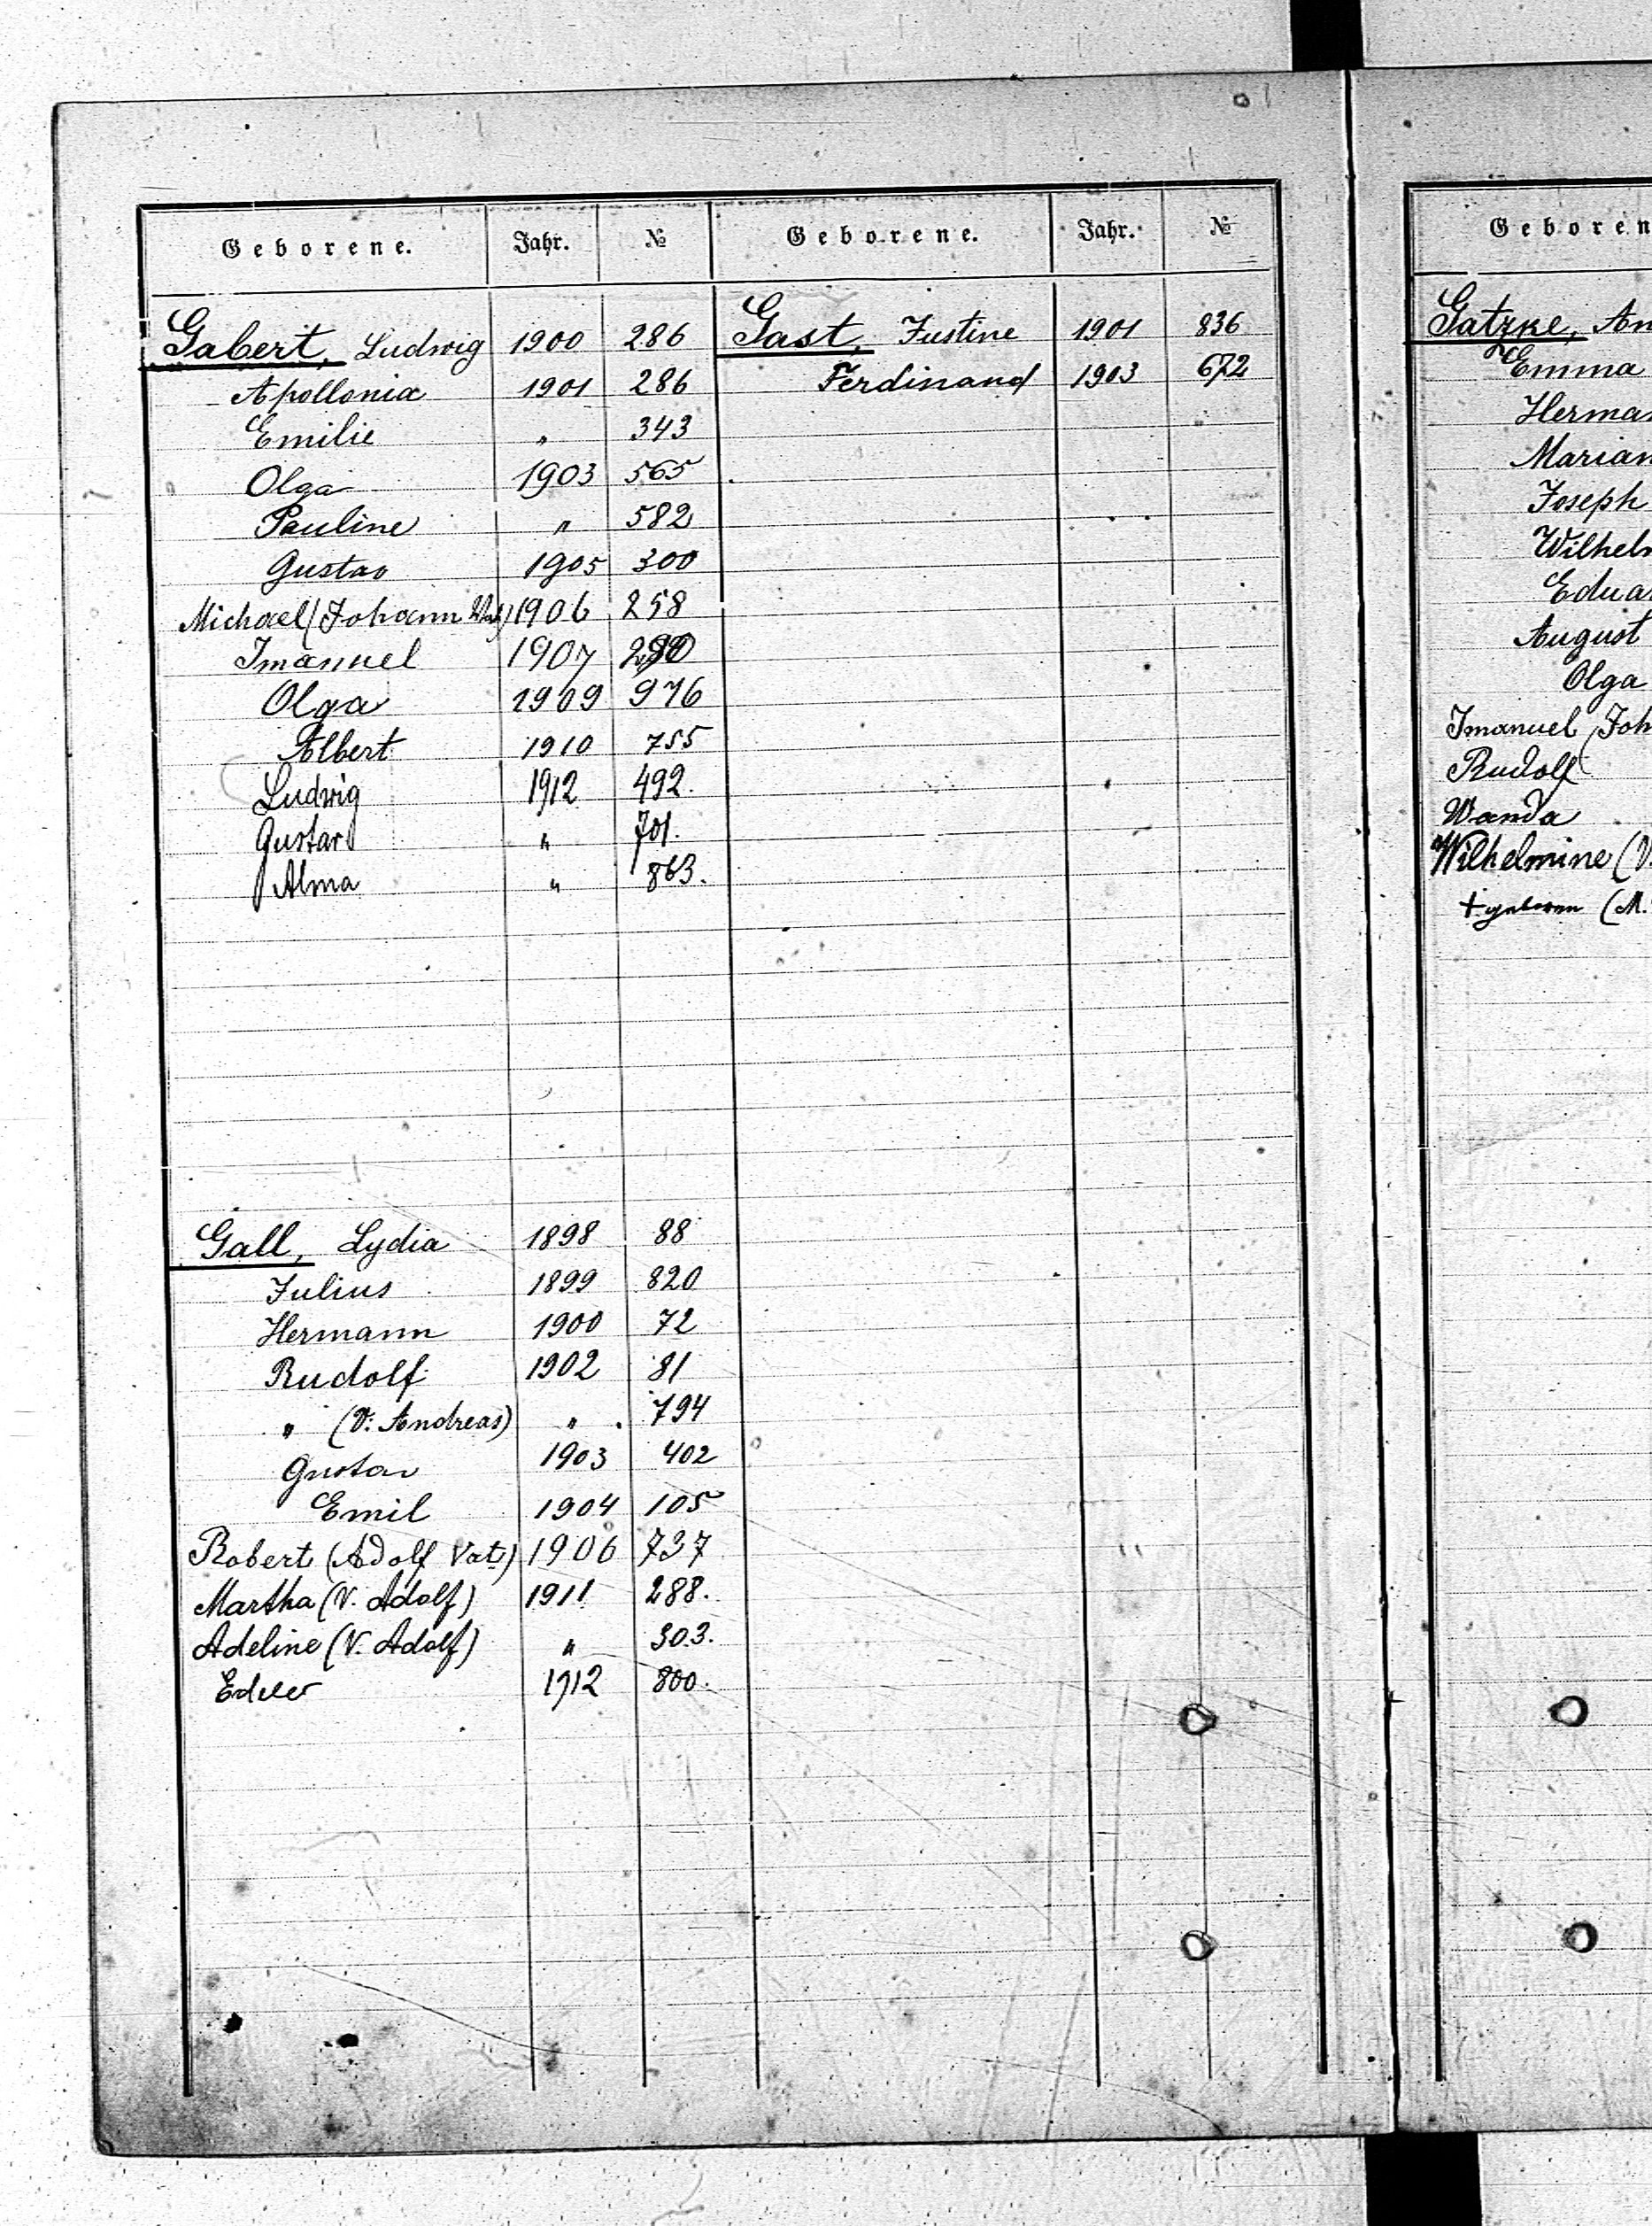 Geborene. Jahr. №
Gabert, Ludwig 1900 286
Apollonia 1901 286
Emilie " 343
Olga 1903 565
Pauline " 582
Gustav 1905 300
Michael (Johann Vat) 1906 258
Imanuel 1907
Olga 1909 976
Albert 1910 755
Ludwig 1912 492.
Gustav " 701.
Alma " 863.
Gall, Lydia 1898 88
Julius 1899 820
Hermann 1900 72
Rudolf 1902 81
" (V: Andreas) " 794
Gustav 1903 402
Emil 1904 105
Robert (Adolf Vat) 1906 737
Martha (V. Adolf) 1911 288.
Adeline (V. Adolf) " 303.
1912 800.
Geborene. Jahr. №
Gast, Justine 1901 836
Ferdinand 1903 672
Geboren
Gatzke, An
Emma
Herman
Marian
Joseph
Wilhelm
Eduar
August
Olga
Imanuel (Joh
Rudolf
Wanda
Wilhelmine (V
+ geboren (M.